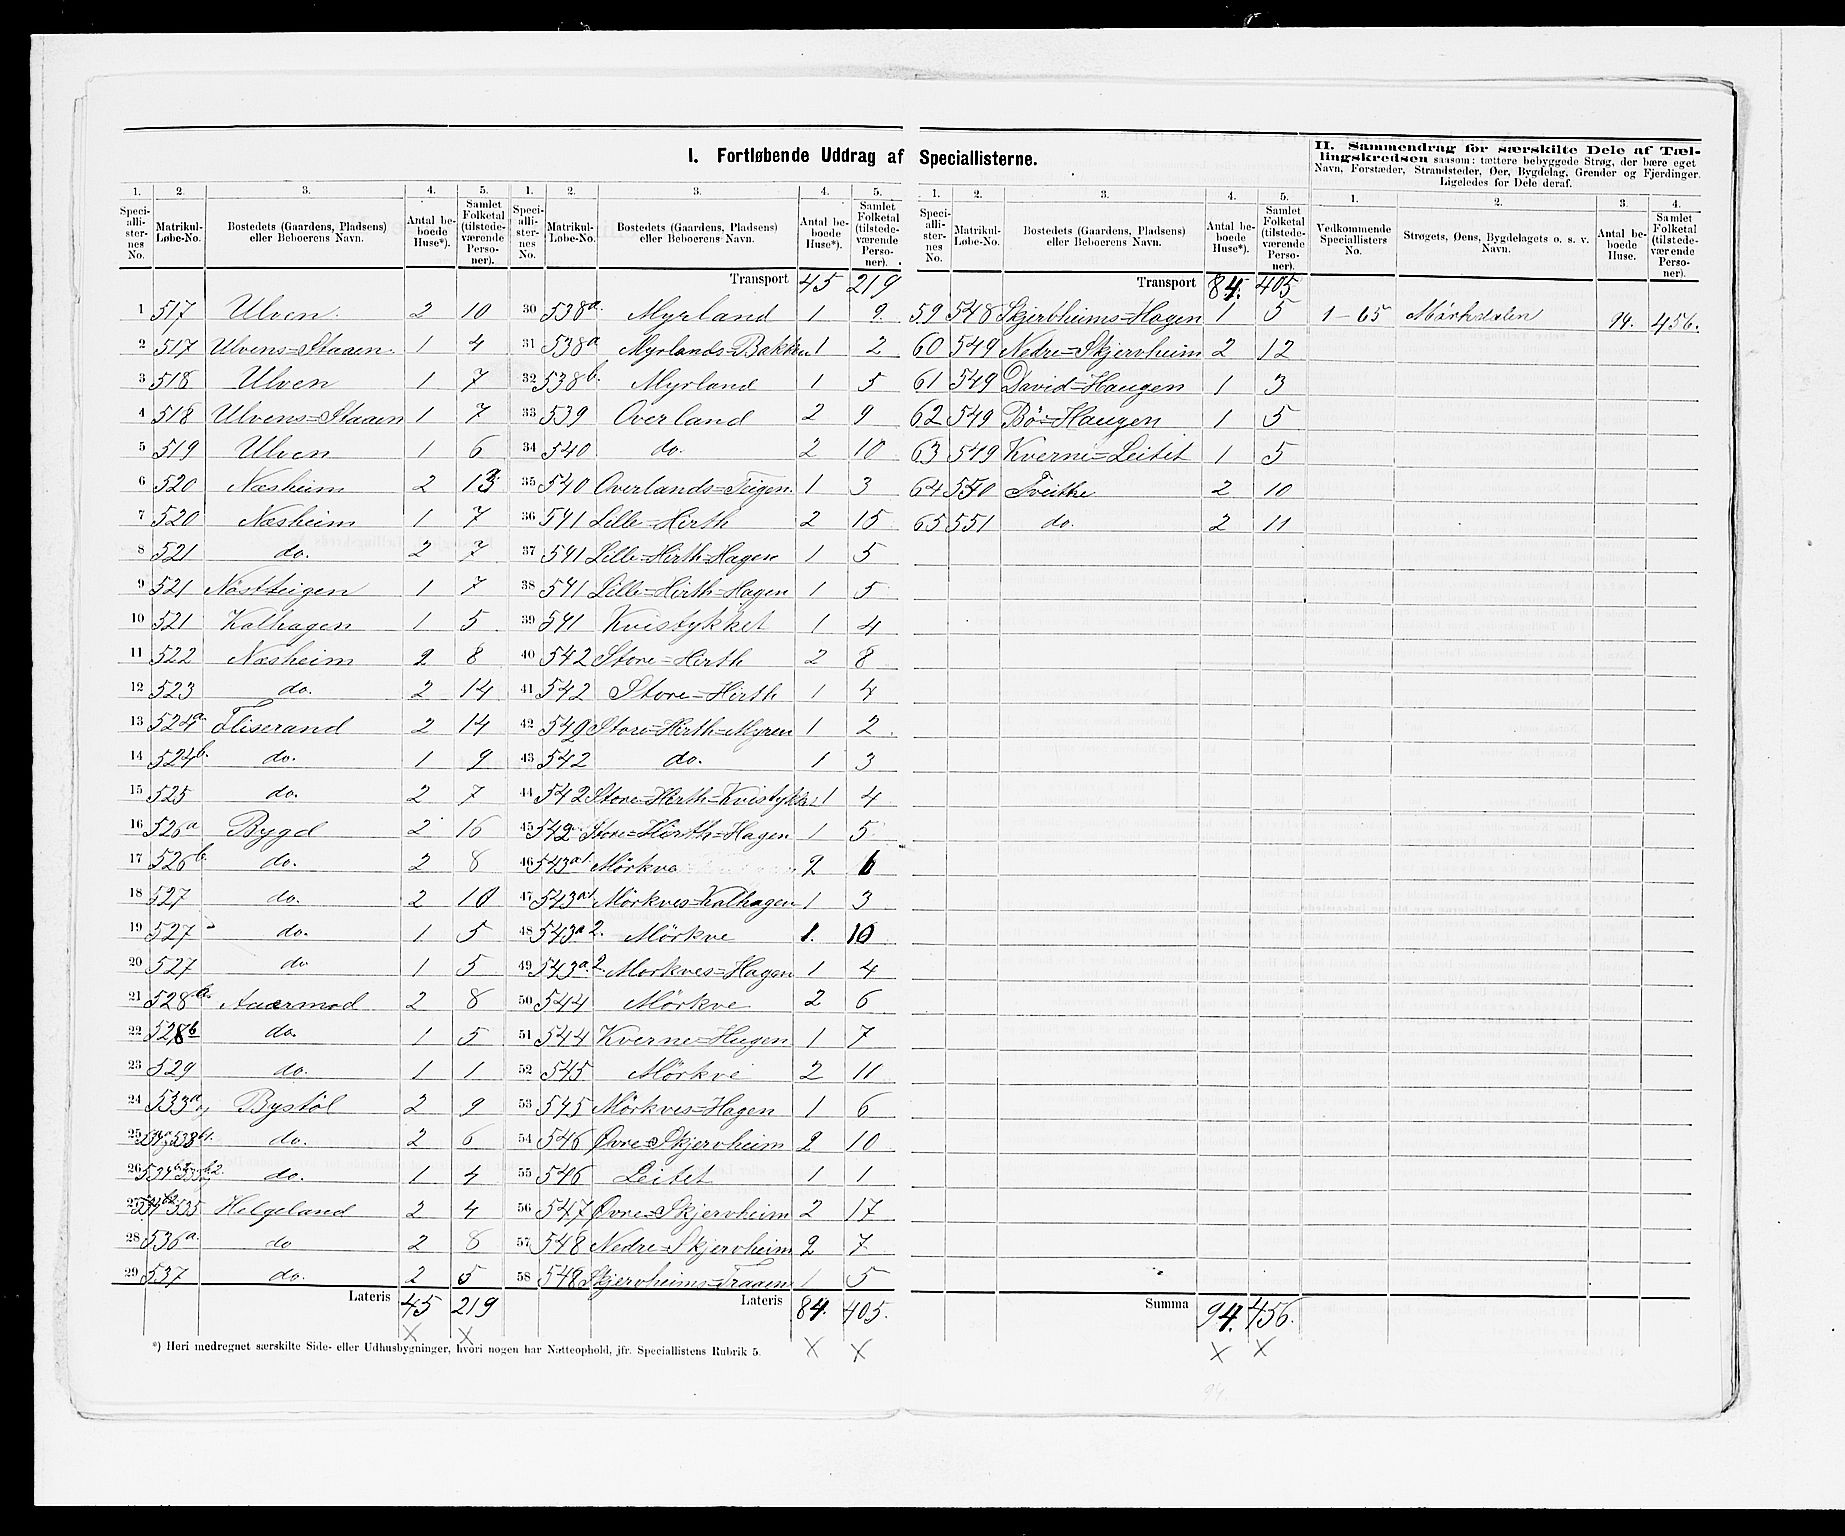 I. Fortløbende Uddrag af Speciallisterne.
II. Sammendrag for særskilte Dele af Tæl-
lingskredsen saasom: tættere bebyggede Strøg, der bære eget
Navn, Forstæder, Strandsteder, Øer, Bygdelag, Grender og Fjerdinger.
Ligeledes for Dele deraf.
1. 2. 3. 4. 5.
Speciallisternes No. Matrikul-Løbe-No. Bostedets (Gaardens, Pladsens) eller Beboerens Navn. Antal beboede Huse*). Samlet Folketal (tilstedeværende Personer).
1 517 Ulven 2 10
2 517 Ulvens=Staaen 1 4
3 518 Ulven 1 7
4 518 Ulvens=Staaen 1 7
5 519 Ulven 1 6
6 520 Næsheim 2 13
7 520 Næsheim 1 7
8 521 do. 2 7
9 521 Nøstteigen 1 7
10 521 Kalhagen 1 5
11 522 Næsheim 2 8
12 523 do. 2 14
13 524a Fliserand 2 14
14 524b. do. 1 9
15 525 do. 2 7
16 526a Bygd 2 16
17 526b. do. 2 8
18 527 do. 2 10
19 527 do. 1 5
20 527 do 1 5
21 528a. Aaermod 2 8
22 528b do. 1 5
23 529 do. 1 1
24 533a Bystöl 2 9
25 do. 2 6
26 do. 1 4
27 535 Helgeland 2 4
28 536a. do 2 8
29 537 do. 2 5
Lateris 45 219
1. 2. 3. 4. 5.
Speciallisternes No. Matrikul-Løbe-No. Bostedets (Gaardens, Pladsens) eller Beboerens Navn. Antal beboede Huse*). Samlet Folketal (tilstedeværende Personer).
Transport 45 219
30 538a. Myrland 1 9
31 538a Myrlands=Bakken 1 2
32 538b. Myrland 1 5
33 539 Overland 2 9
34 540 do. 2 10
35 540 Overlands=Teigen. 1 3
36 541 Lille=Hirth 2 15
37 541 Lille=Hirth=Hagen 1 5
38 541 Lille=Hirth=Hagen 1 5
39 541 Kvistykket 1 4
40 542 Store=Hirth 2 8
41 542 Store=Hirth 1 4
42 542 Store=Hirth=Myren 1 2
43 542 do. 1 3
44 542 Store=Hirth=Kvistykket 1 4
45 542 Store=Hirth=Hagen 1 5
46 543a1. Mörkve 2 6
47 543a1 Mörkves=Kalhagen 1 3
48 543a2. Mörkve 1. 10
49 543a.2. Mörkves=Hagen 1 4
50 544 Mörkve 2 6
51 544 Kverne=Hugen 1 7
52 545 Mörkve 2 11
53 545 Mörkves=Hagen 1 6
54 546 Øvre=Skjervheim 2 10
55 546 Leitet 1 1
56 547 Øvre=Skjervheim 2 17
57 548 Nedre=Skjervheim 2 7
58 548 Skjervheims=Traaen 1 5
Lateris 84. 405.
1. 2. 3. 4. 5.
Speciallisternes No. Matrikul-Løbe-No. Bostedets (Gaardens, Pladsens) eller Beboerens Navn. Antal beboede Huse*). Samlet Folketal (tilstedeværende Personer).
Transport 84. 405
59 548 Skjervheims=Hagen 1 5
60 549 Nedre=Skjervheim 2 12
61 549 David=Haugen 1 3
62 549 Bö=Haugen 1 5
63 549 Kverne=Leitet 1 5
64 550 Tveithe 2 10
65 551 do. 2 11
Summa 94. 456.
1. 2. 3. 4.
Vedkommende Speciallisters No. Strøgets, Øens, Bygdelagets o. s. v. Navn. Antal beboede Huse. Samlet Folketal (tilstedeværende Personer).
1-65 Mörkdalen 94. 456.
*) Heri medregnet særskilte Side- eller Udhusbygninger, hvori nogen har Natteophold, jfr. Speciallistens Rubrik 5.
94.